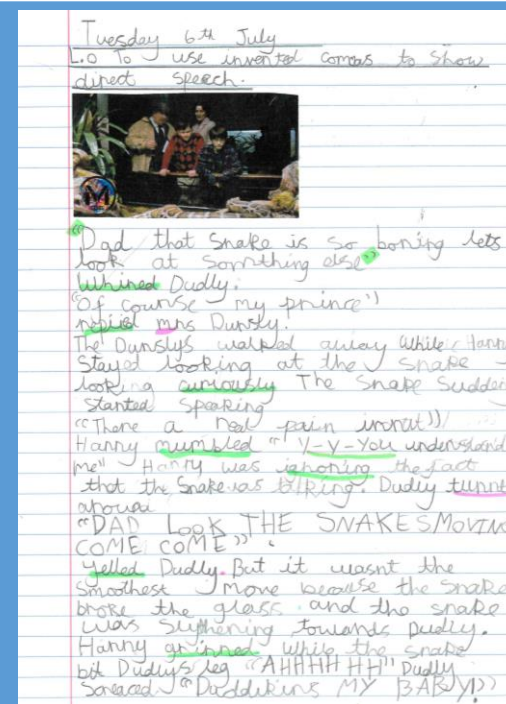 Tuesday 6th July
L.O To use invented comas to show
direct speech.
"Dad that snake is so boring lets
look at somthing else"
Whined Dudly.
"Of course my prince"
mrs Dursly.
The Durslys walked away while Harry
Stayed looking at the snake
looking curiously The snake Sudden
Started speaking
"There a real pain
Harry mumbled "Y-Y-You understand
me" Harry was ignoring the fact
that the snake was talking. Dudly
"DAD LOOK THE SNAKES MOVING
COME COME"
Yelled Dudly. But it wasnt the
Smoothest move because the snake
broke the glass and the snake
was towards Dudly.
Harry grinned while the snake
bit Dudlys leg "AHHHH HH" Dudly
"Duddikins MY BABY!"